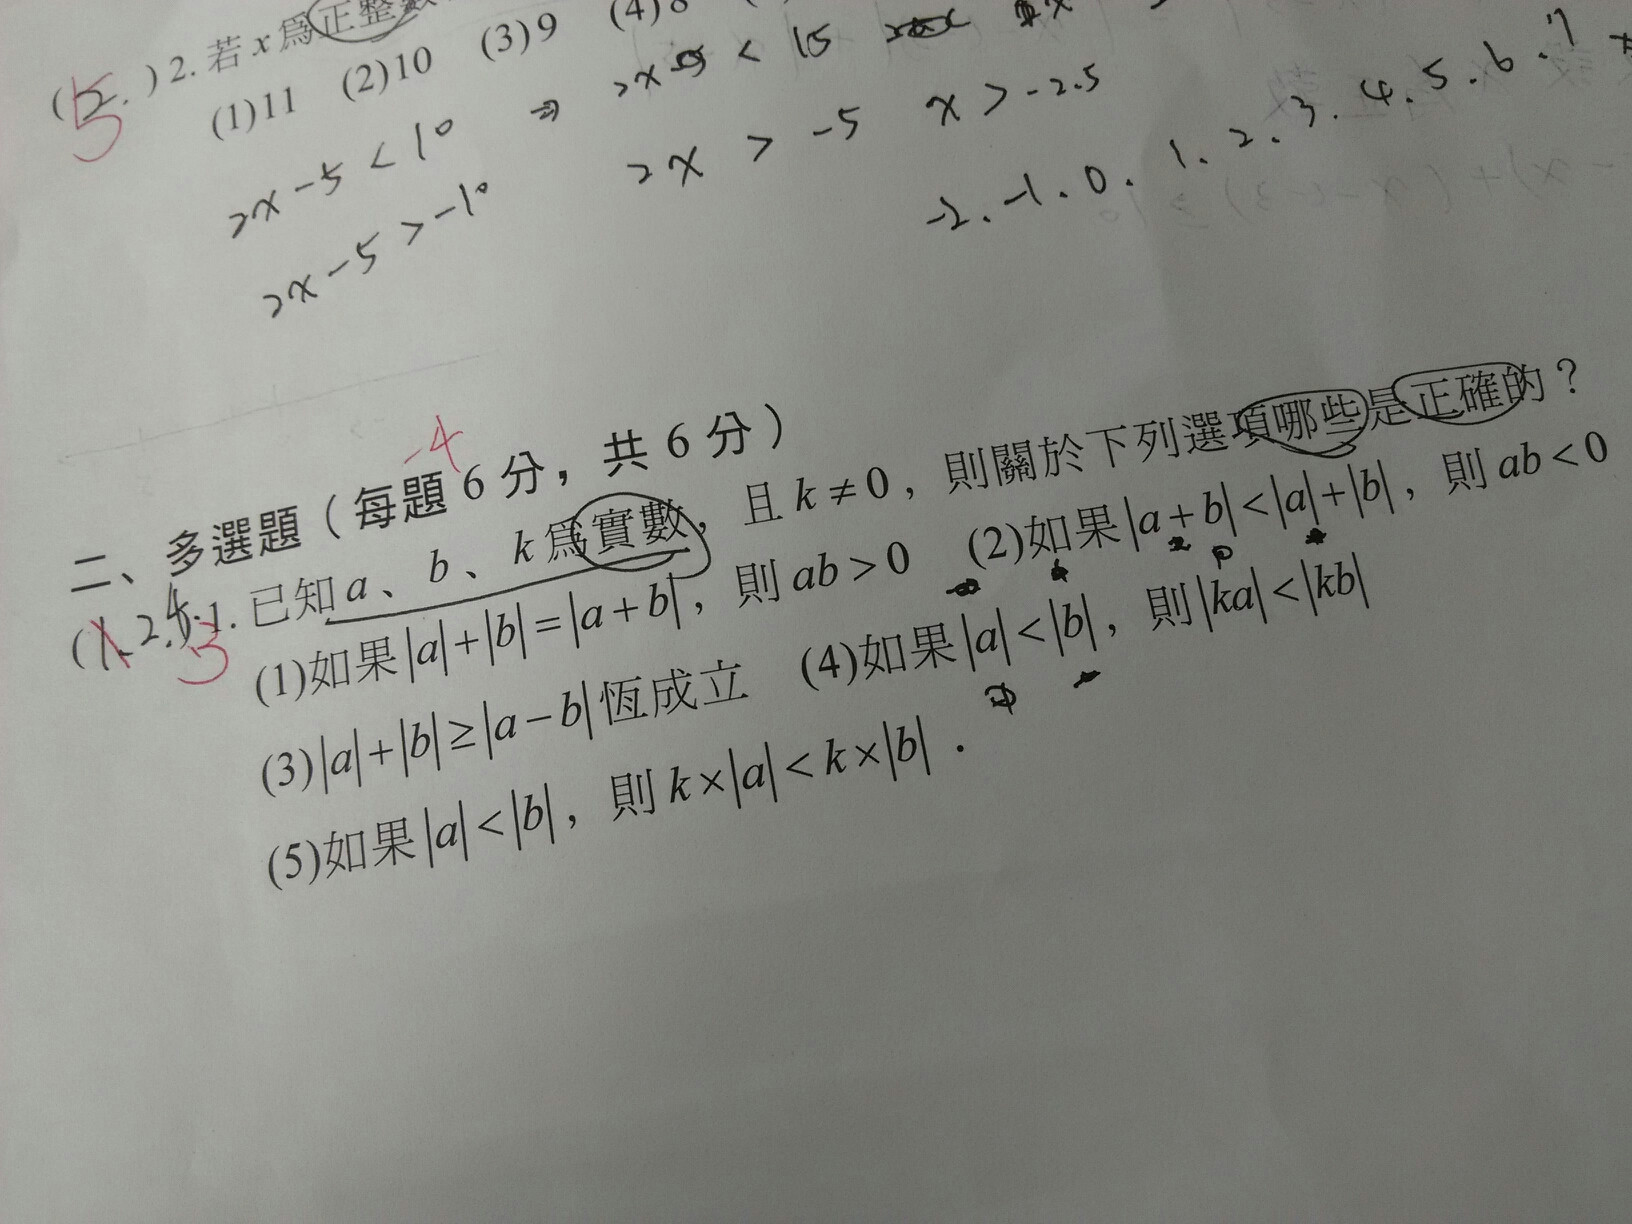 ( 2. ) 2. 若 x 為正整數
5
(1)11 (2)10 (3)9 (4)8
2x-5 < 10 ⇒ 2x < 15
2x-5 > -10 2x > -5 x > -2.5
-2、-1、0、1、2、3、4、5、6、7
-4
二、多選題(每題 6 分,共 6 分)
(1.2.4.) 1. 已知 a、b、k 為實數,且 k≠0,則關於下列選項哪些是正確的?
3
(1)如果|a|+|b|=|a+b|,則 ab>0 (2)如果|a+b|<|a|+|b|,則 ab<0
(3)|a|+|b|≥|a-b|恆成立 (4)如果|a|<|b|,則|ka|<|kb|
(5)如果|a|<|b|,則 k×|a|<k×|b|.